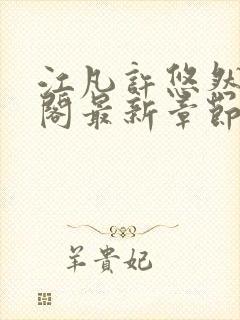 江凡許悠然
閣最新章節
羊貴妃